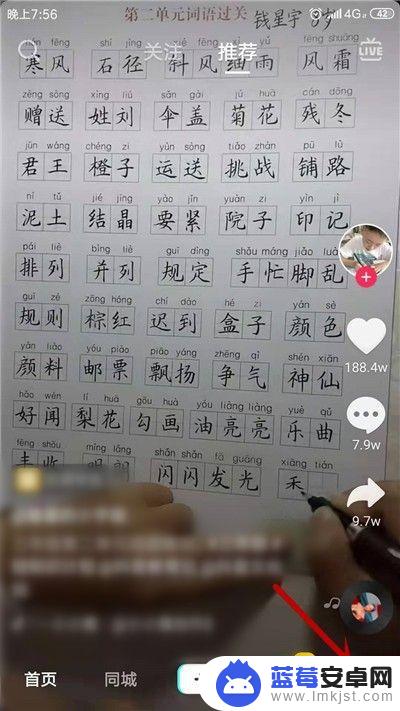 晚上7:56 4G 42
第二单元词语过关 钱星宇 8岁
关注 推荐 LIVE
hán fēng shí jìng xié fēng xì yǔ fēng shuāng
寒风 石径 斜风细雨 风霜
zèng sòng xìng liú sǎn gài jú huā cán dōng
赠送 姓刘 伞盖 菊花 残冬
jūn wáng chéng zi yùn sòng tiǎo zhàn pū lù
君王 橙子 运送 挑战 铺路
ní tǔ jié jīng yào jǐn yuàn zi yìn jì
泥土 结晶 要紧 院子 印记
pái liè bìng liè guī dìng shǒu máng jiǎo luàn
排列 并列 规定 手忙脚乱
guī zé zōng hóng chí dào hé zi yán sè
规则 棕红 迟到 盒子 颜色
188.4w
yán liào yóu piào piāo yáng zhēng qì shén xiān
颜料 邮票 飘扬 争气 神仙
hǎo wén lí huā gōu huà yóu liàng liàng yuè qǔ
好闻 梨花 勾画 油亮亮 乐曲
7.9w
fēng shōu míng lǎng shǎn shǎn fā guāng xiāng tián
丰收 明朗 闪闪发光
9.7w
首页 同城
蓝莓安卓网
www.lmkjst.com